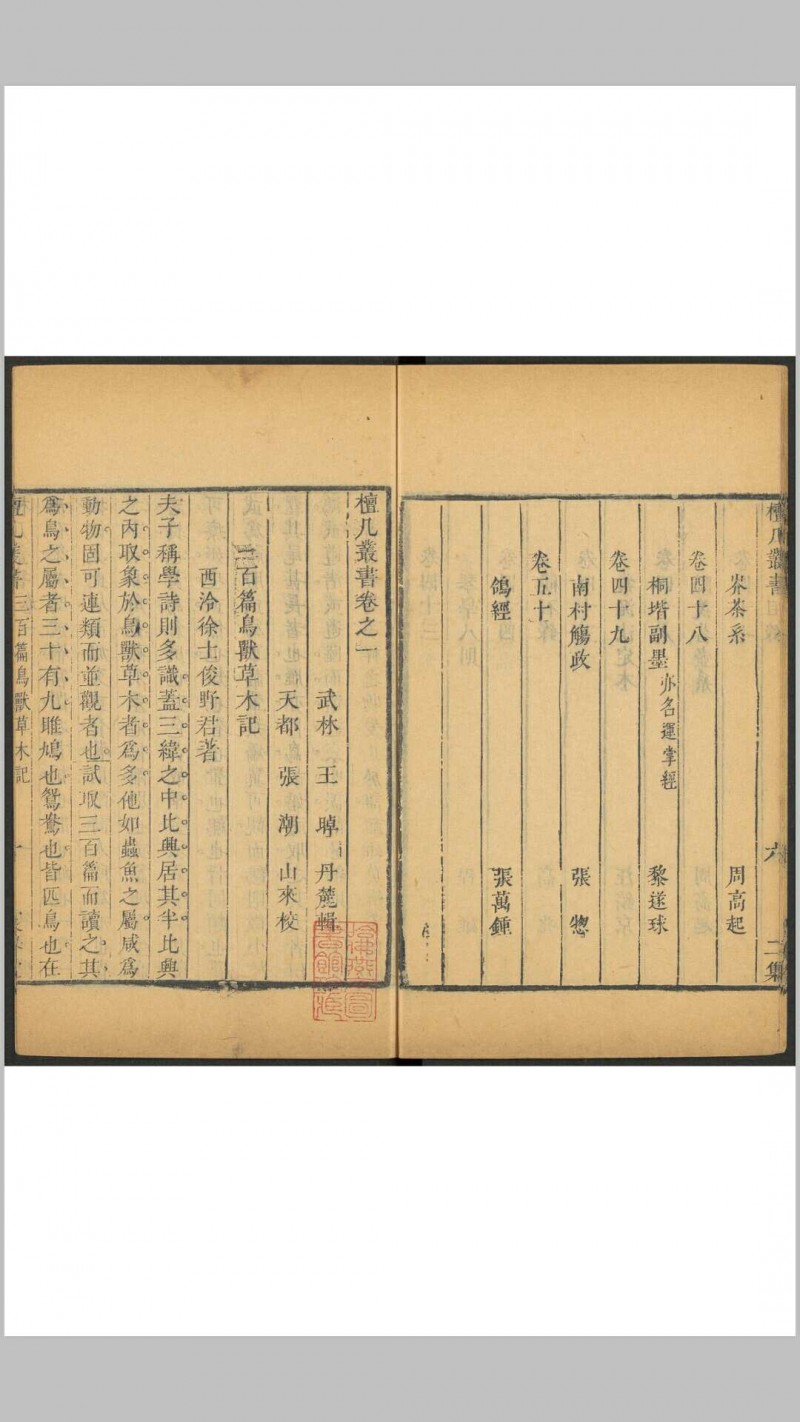 檀几叢書
六
二集
岕茶系
周高起
卷四十八
桐堦副墨亦名運掌經
黎遂球
卷四十九
南村觴政
張惣
卷五十
鴿經
張萬鍾
檀几叢書卷之一
武林 王晫 丹麓輯
天都 張潮 山來校
三百篇鳥獸草木記
西泠徐士俊野君著
夫子稱學詩則多識蓋三緯之中比興居其半比興
之內取象於鳥獸草木者爲多他如蟲魚之屬咸爲
動物固可連類而並觀者也試取三百篇而讀之其
爲鳥之屬者三十有九雎鳩也鴛鴦也皆匹鳥也在
檀几叢書三百篇鳥獸草木記